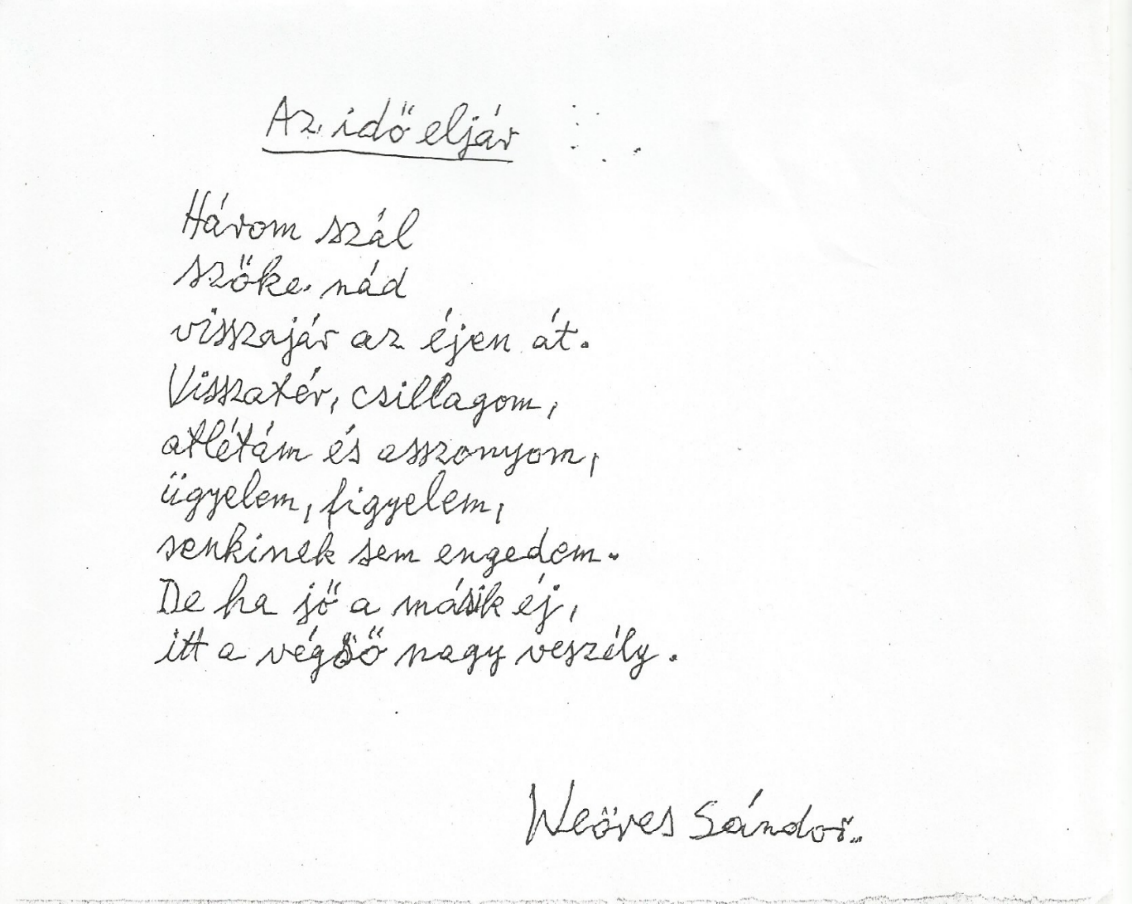 Az idő eljár
Három szál
szőke nád
visszajár az éjen át.
Visszatér, csillagom,
atlétám és asszonyom,
ügyelem, figyelem,
senkinek sem engedem.
De ha jő a másik éj,
itt a végső nagy veszély.
Weöres Sándor